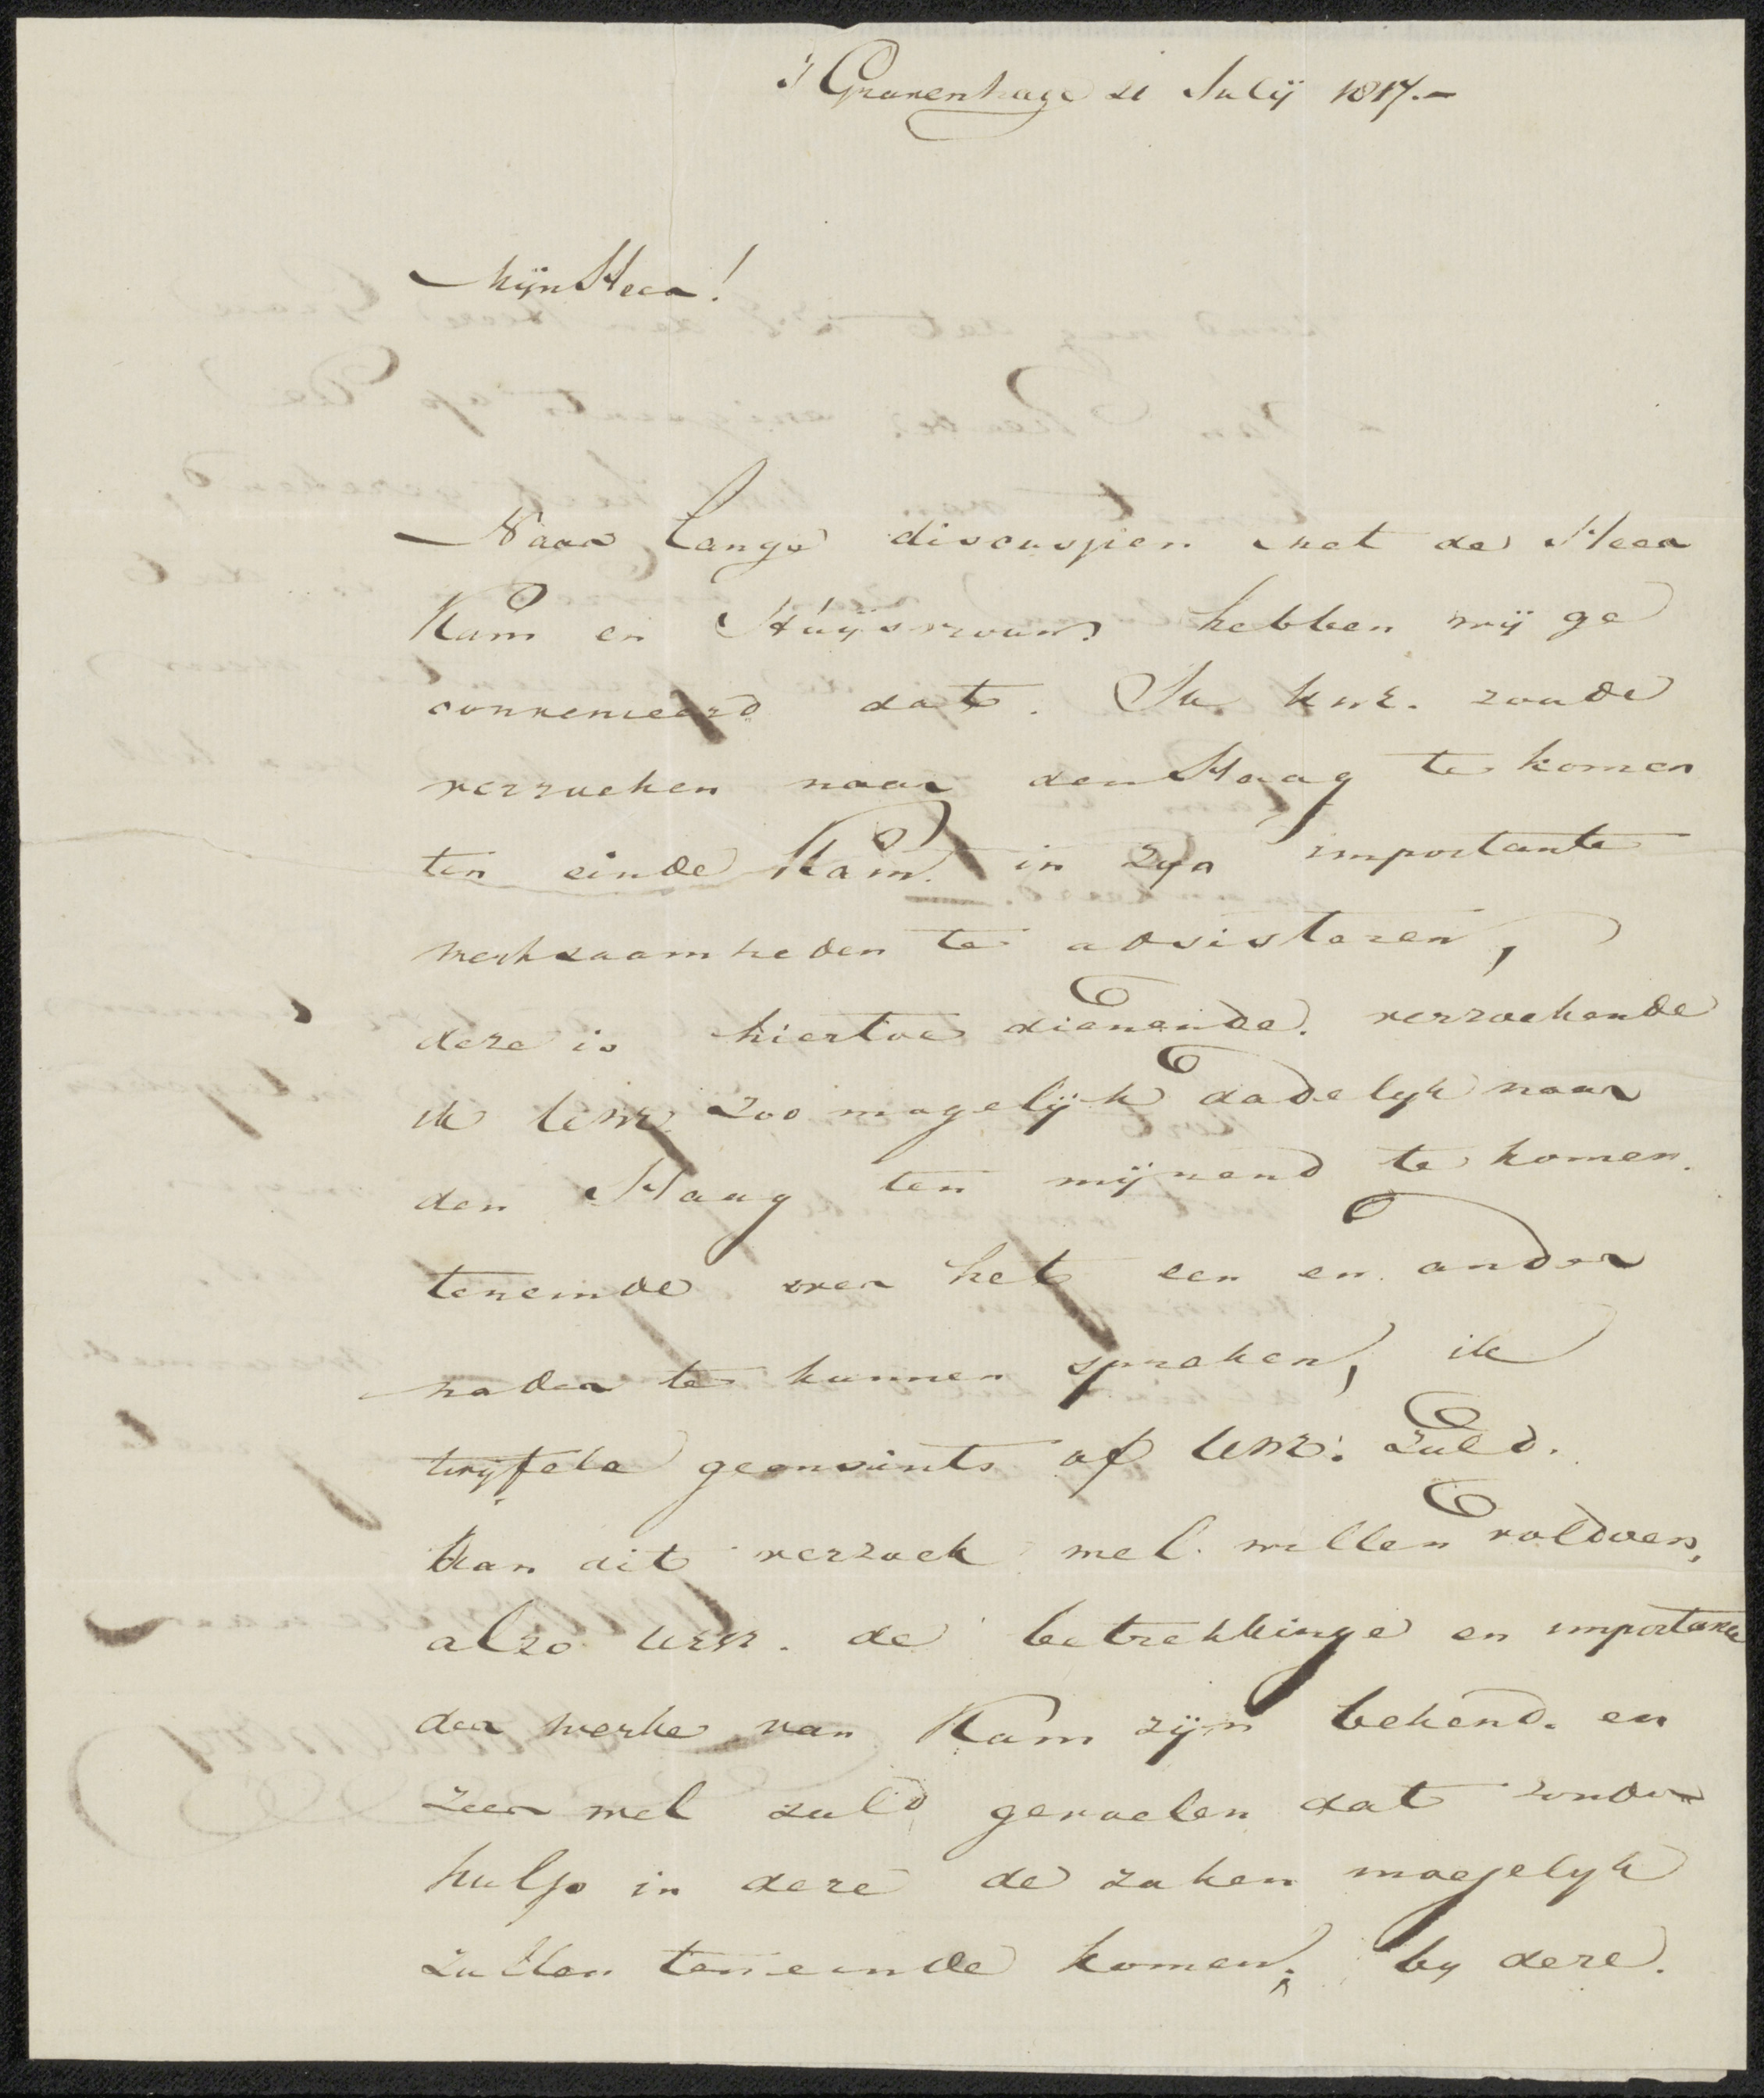 's Gravenhage 21 Julij 1817.-
Mijn Heer!
Naar lange discuspien met de Heer
Kam en Huijsvrouw hebben wij ge
convenieerd dat. Ik UWE. zoude
verzoeken naar den Haag te komen
ten einde Kam. in zyn importante
werkzaamheden te adsisteren,
deze is hiertoe dienende. verzoekende
ik UWE. zoo mogelijk dadelyk naar
den Haag ten mijnend te komen.
teneinde over het een en ander
nader te kunnen spreken, ik
twyfele geensints of UWE: zuld.
aan dit verzoek wel willen voldoen,
alzo UWE. de betrekkinge en importance
der werke van Kam zijn bekend. en
zeer wel zuld gevoelen dat zonder
hulp in deze de zaken moejelyk
zullen teneinde komen; by deze.